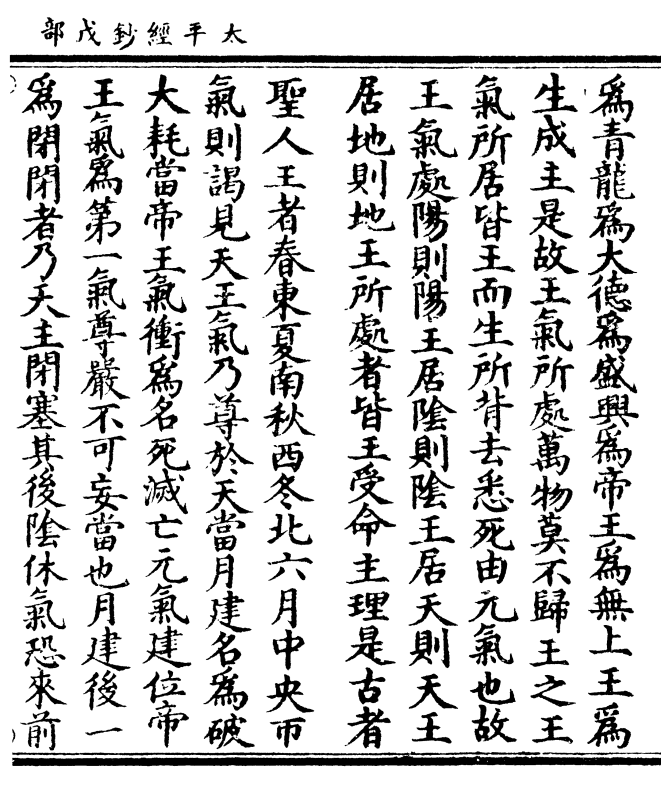 太平經鈔戊部
為青龍為大德為盛興為帝王為無上王為
生成主是故王氣所處萬物莫不歸王之王
氣所居皆王而生所背去悉死由元氣也故
王氣處陽則陽王居陰則陰王居天則天王
居地則地王所處者皆王受命主理是古者
聖人王者春東夏南秋西冬北六月中央帀
氣則謁見天王氣乃尊於天當月建名為破
大耗當帝王氣衝為名死滅亡元氣建位帝
王氣為第一氣尊嚴不可妄當也月建後一
為閉閉者乃天主閉塞其後陰休氣恐來前